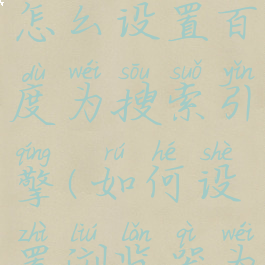 怎么设置百
dù wéi sōu suǒ yǐn
度为搜索引
qíng rú hé shè
擎(如何设
zhì liú lǎn qì wéi
置浏览器为